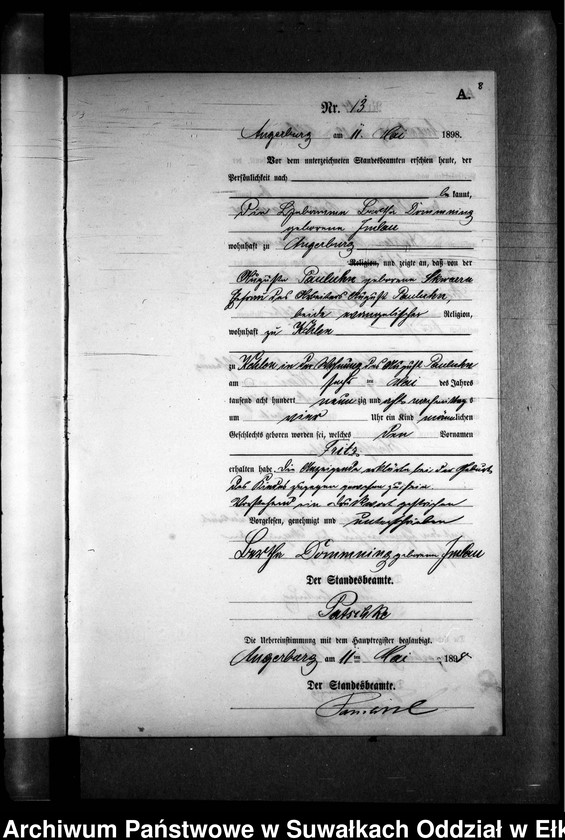 8
A.
Nr. 13
Angerburg am 11. Mai 1898.
Vor dem unterzeichneten Standesbeamten erschien heute, der
Persönlichkeit nach
be kannt,
Die Hebamme Bertha Dömmning
geborene Imlau
wohnhaft zu Angerburg
Religion, und zeigte an, daß von der
Auguste Pauluhn geborene Skwarra
Ehefrau des Arbeiters August Pauluhn,
beide evangelischer Religion,
wohnhaft zu Kehlen
zu Kehlen in der Wohnung des August Pauluhn
am sechs ten Mai des Jahres
tausend acht hundert neun zig und acht nachmittags
um vier Uhr ein Kind männlichen
Geschlechts geboren worden sei, welches den Vornamen
Fritz
erhalten habe. Die Anzeigende erklärte bei der Geburt
des Kindes zugegen gewesen zu sein.
Vorstehend ein Druckwort gestrichen
Vorgelesen, genehmigt und unterschrieben
Bertha Dömmning geborene Imlau
Der Standesbeamte.
Patschke
Die Uebereinstimmung mit dem Hauptregister beglaubigt.
Angerburg am 11 ten Mai 1898
Der Standesbeamte.
Archiwum Państwowe w Suwałkach Oddział w Ełk